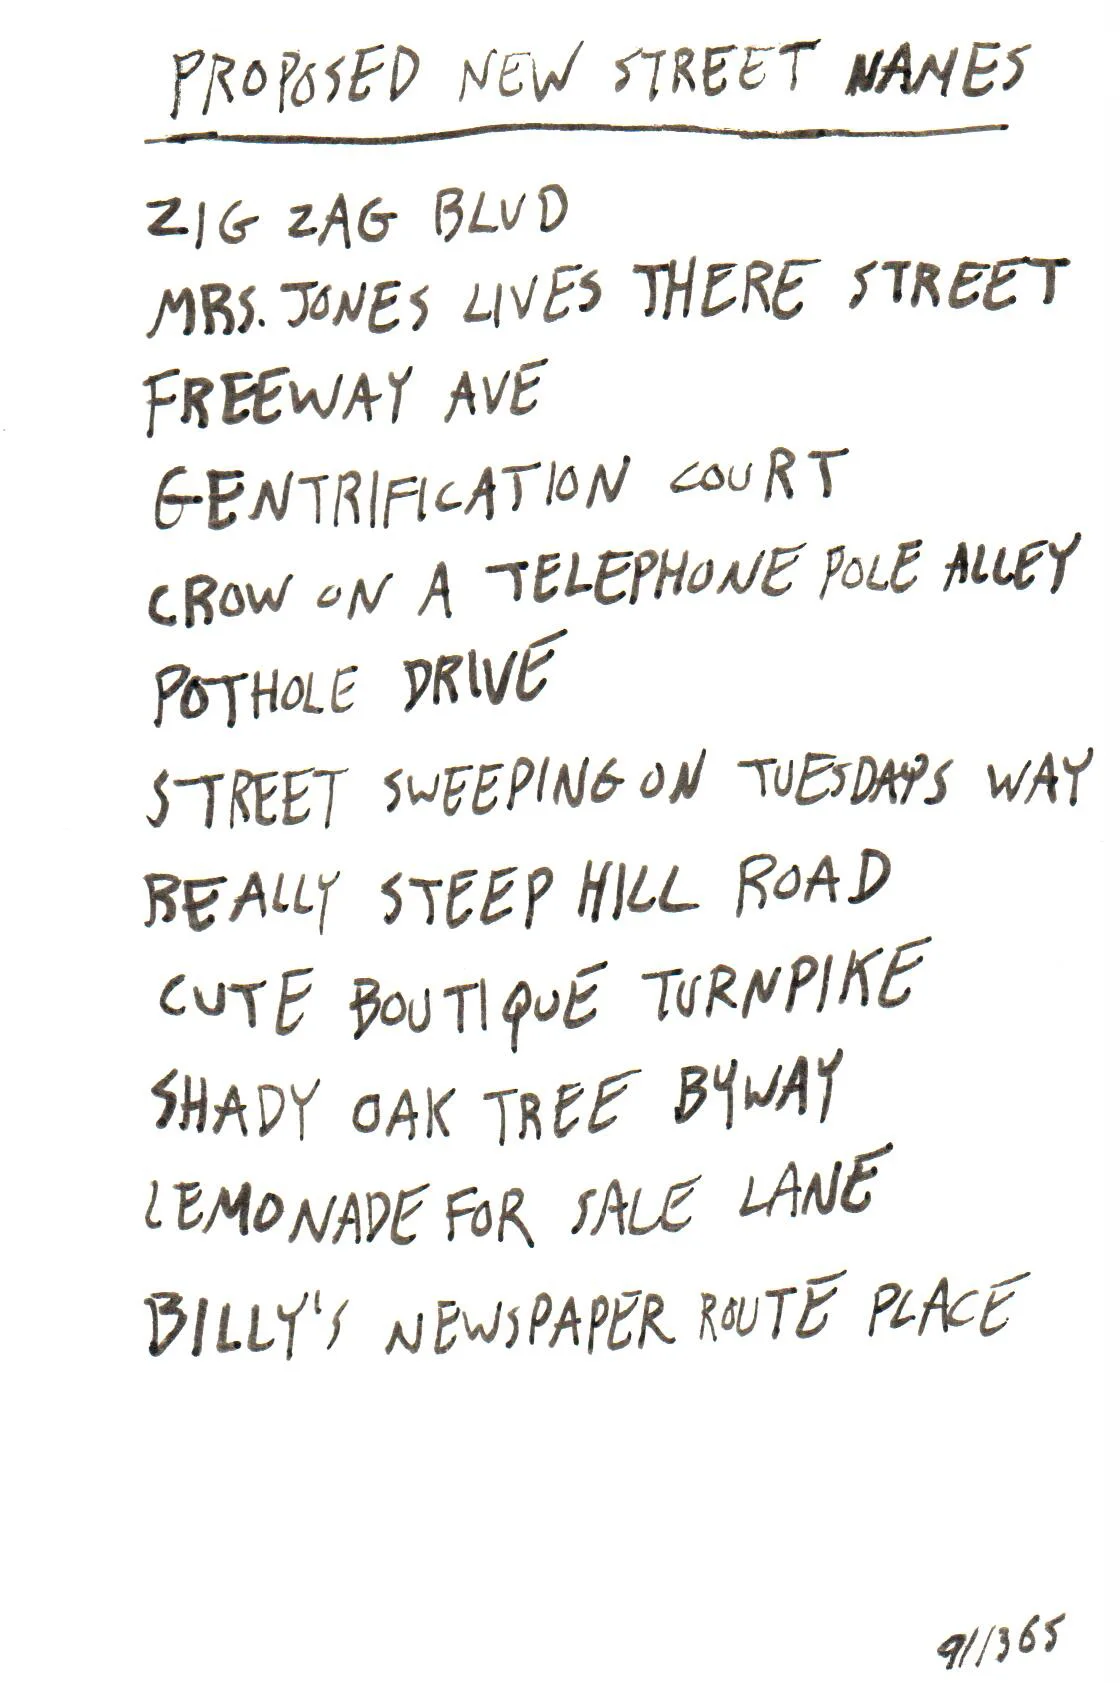 PROPOSED NEW STREET NAMES
ZIG ZAG BLVD
MRS. JONES LIVES THERE STREET
FREEWAY AVE
GENTRIFICATION COURT
CROW ON A TELEPHONE POLE ALLEY
POTHOLE DRIVE
STREET SWEEPING ON TUESDAYS WAY
REALLY STEEP HILL ROAD
CUTE BOUTIQUE TURNPIKE
SHADY OAK TREE BYWAY
LEMONADE FOR SALE LANE
BILLY'S NEWSPAPER ROUTE PLACE
91/365